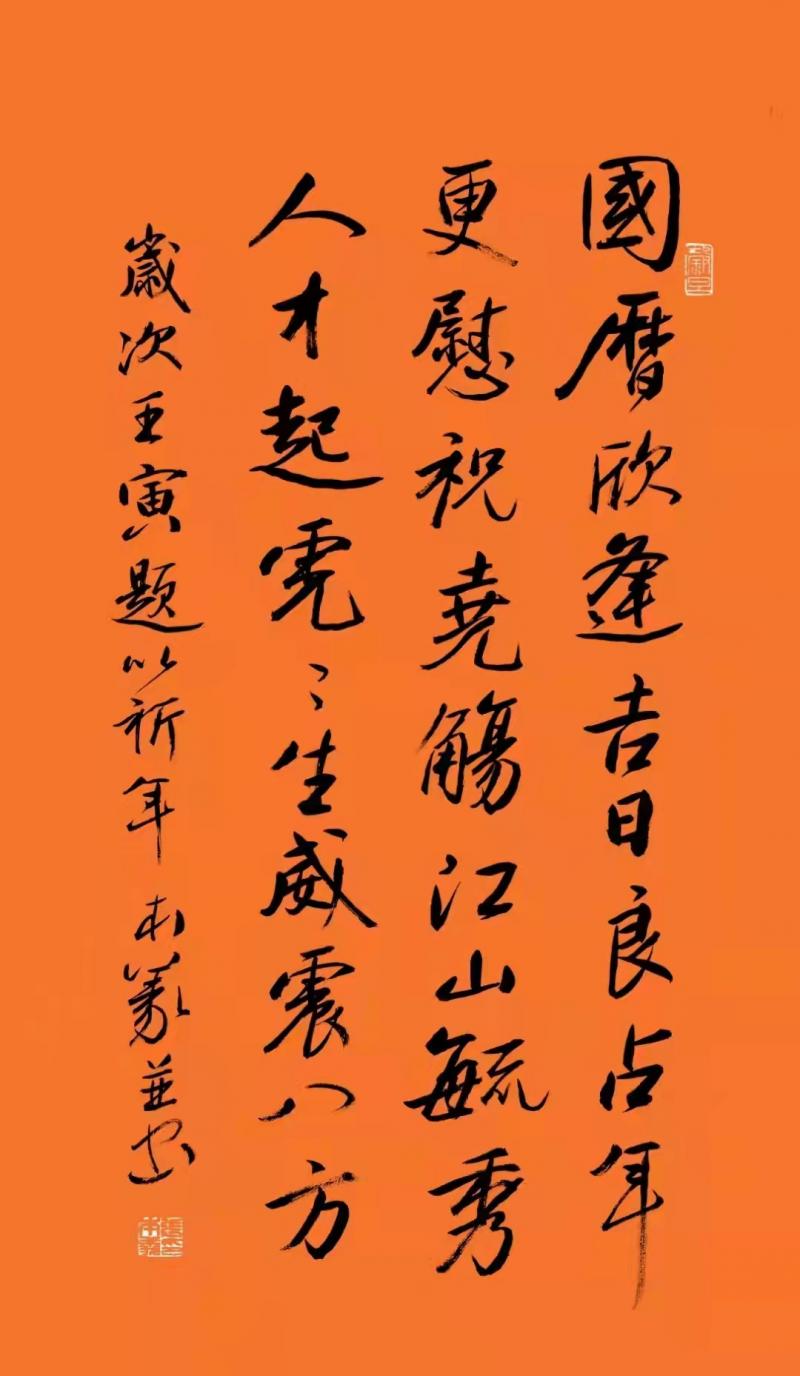 國曆欣逢吉日良占年
更慰祝堯觴江山毓秀
人才起虎〻生威震八方
歲次壬寅題以祈年 本義並書